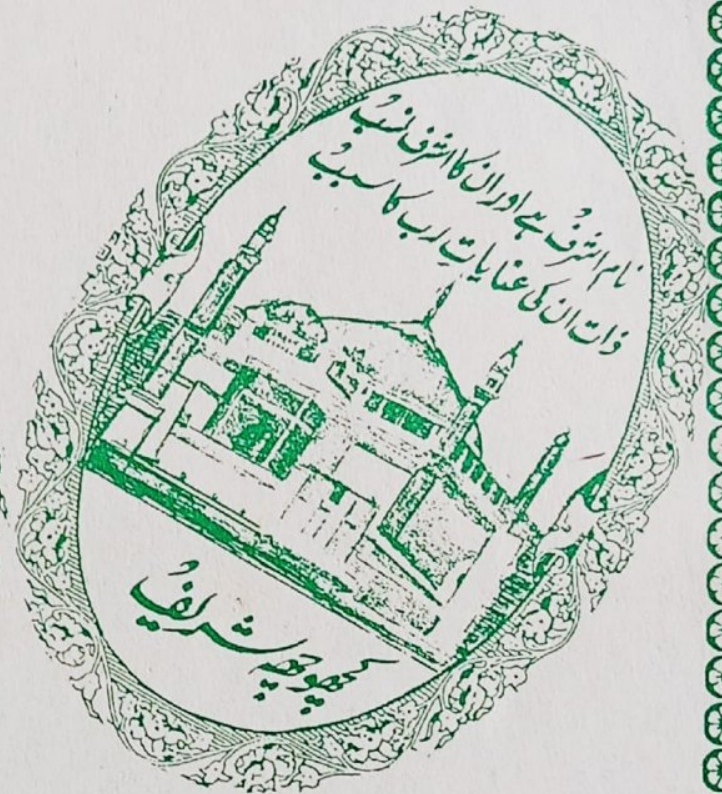 نام اشرف ہے اور ان کا اشرف نسب
ذات ان کی عنایاتِ رب کا سبب
کچھوچھہ شریف